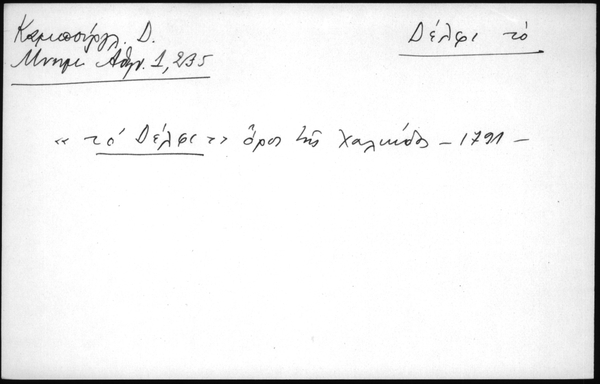 Καμπούρογλ. Δ.
Μνημεῖα Ἀθην. 1, 235
Δέλφι τὸ
« τὸ Δέλφι » ὄρος τῆς Χαλκίδος – 1791 –